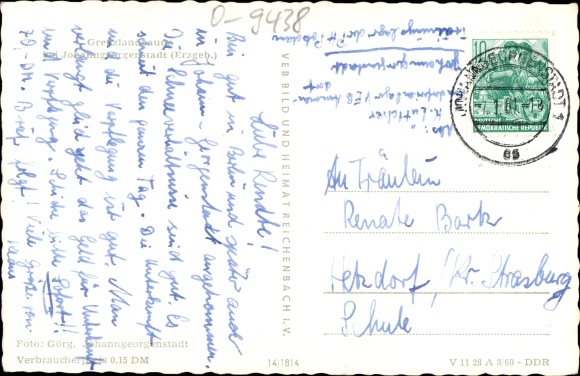 O-9438
Grenzlandbaude
bei Johanngeorgenstadt (Erzgeb.)
Liebe Renate!
Bin gut in Berlin und später auch
in Johann-Georgenstadt angekommen.
Die Schneeverhältnisse sind gut. Es
schneit den ganzen Tag. Die Unterkunft
und die Verpflegung ist gut. Man
verlangt gleich jetzt das Geld für Unterkunft
und Verpflegung. Schicke bitte sofort!!
70,-DM. Brief folgt! Viele Grüße von
Klaus
Foto: Görg, Johanngeorgenstadt
Verbraucherpreis 0,15 DM
VEB BILD UND HEIMAT REICHENBACH i. V.
14/1814
Abs.:
K. Lüttcher
Johanngeorgenstadt
Trainingslager der PH Potsdam
10
DEUTSCHE
DEMOKRATISCHE REPUBLIK
JOHANNGEORGENSTADT 1
-7.1.61.-18
An Fräulein
Renate Bark
Hetzdorf/Kr. Strasburg
Schule
V 11 28 A 3,60 - DDR